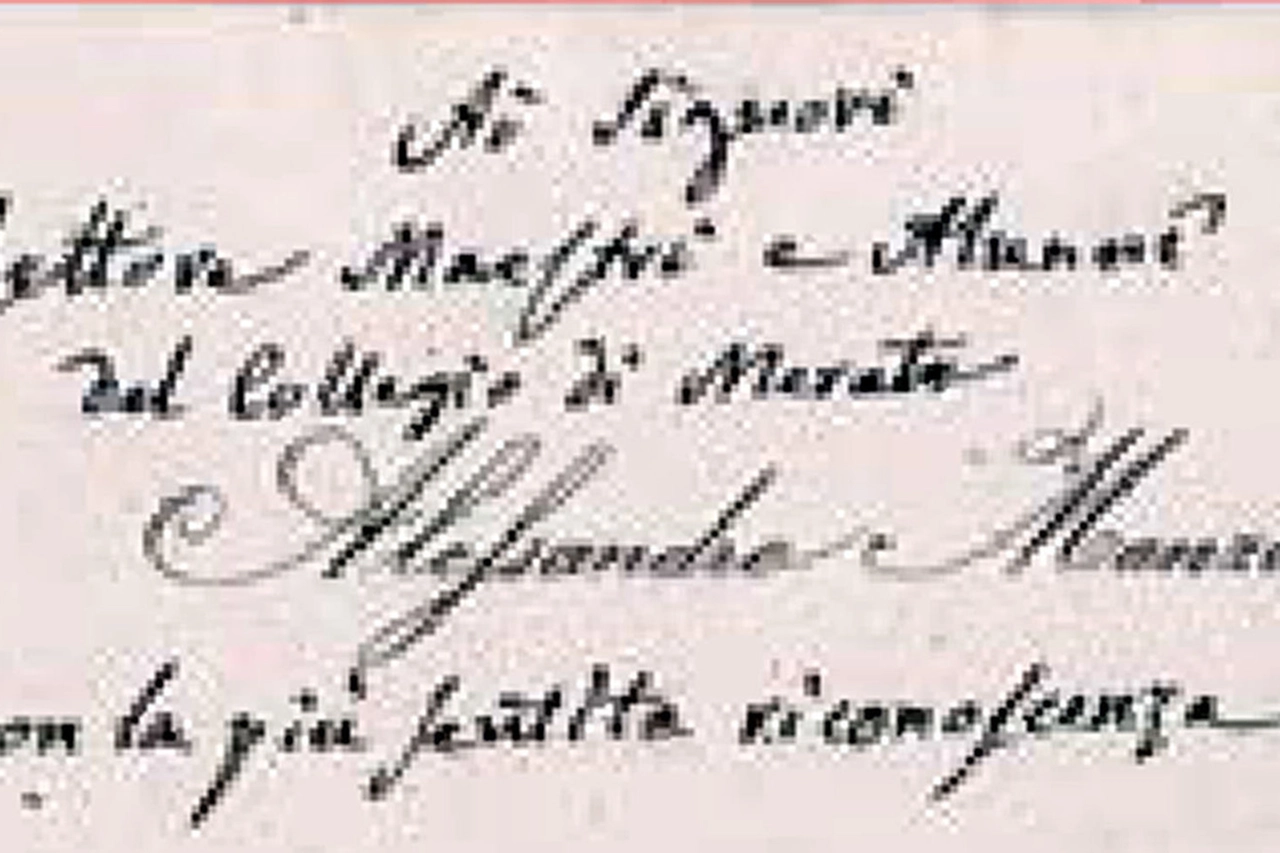 Ai Signori
Rettore Maestri e Alunni
del Collegio di Merate
Alessandro Manzoni
con la più sentita riconoscenza